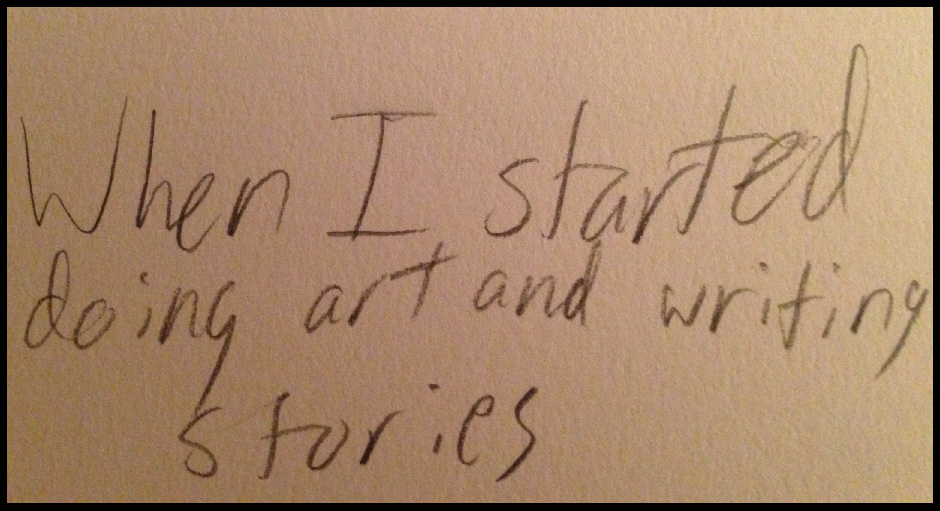 When I started
doing art and writing
stories